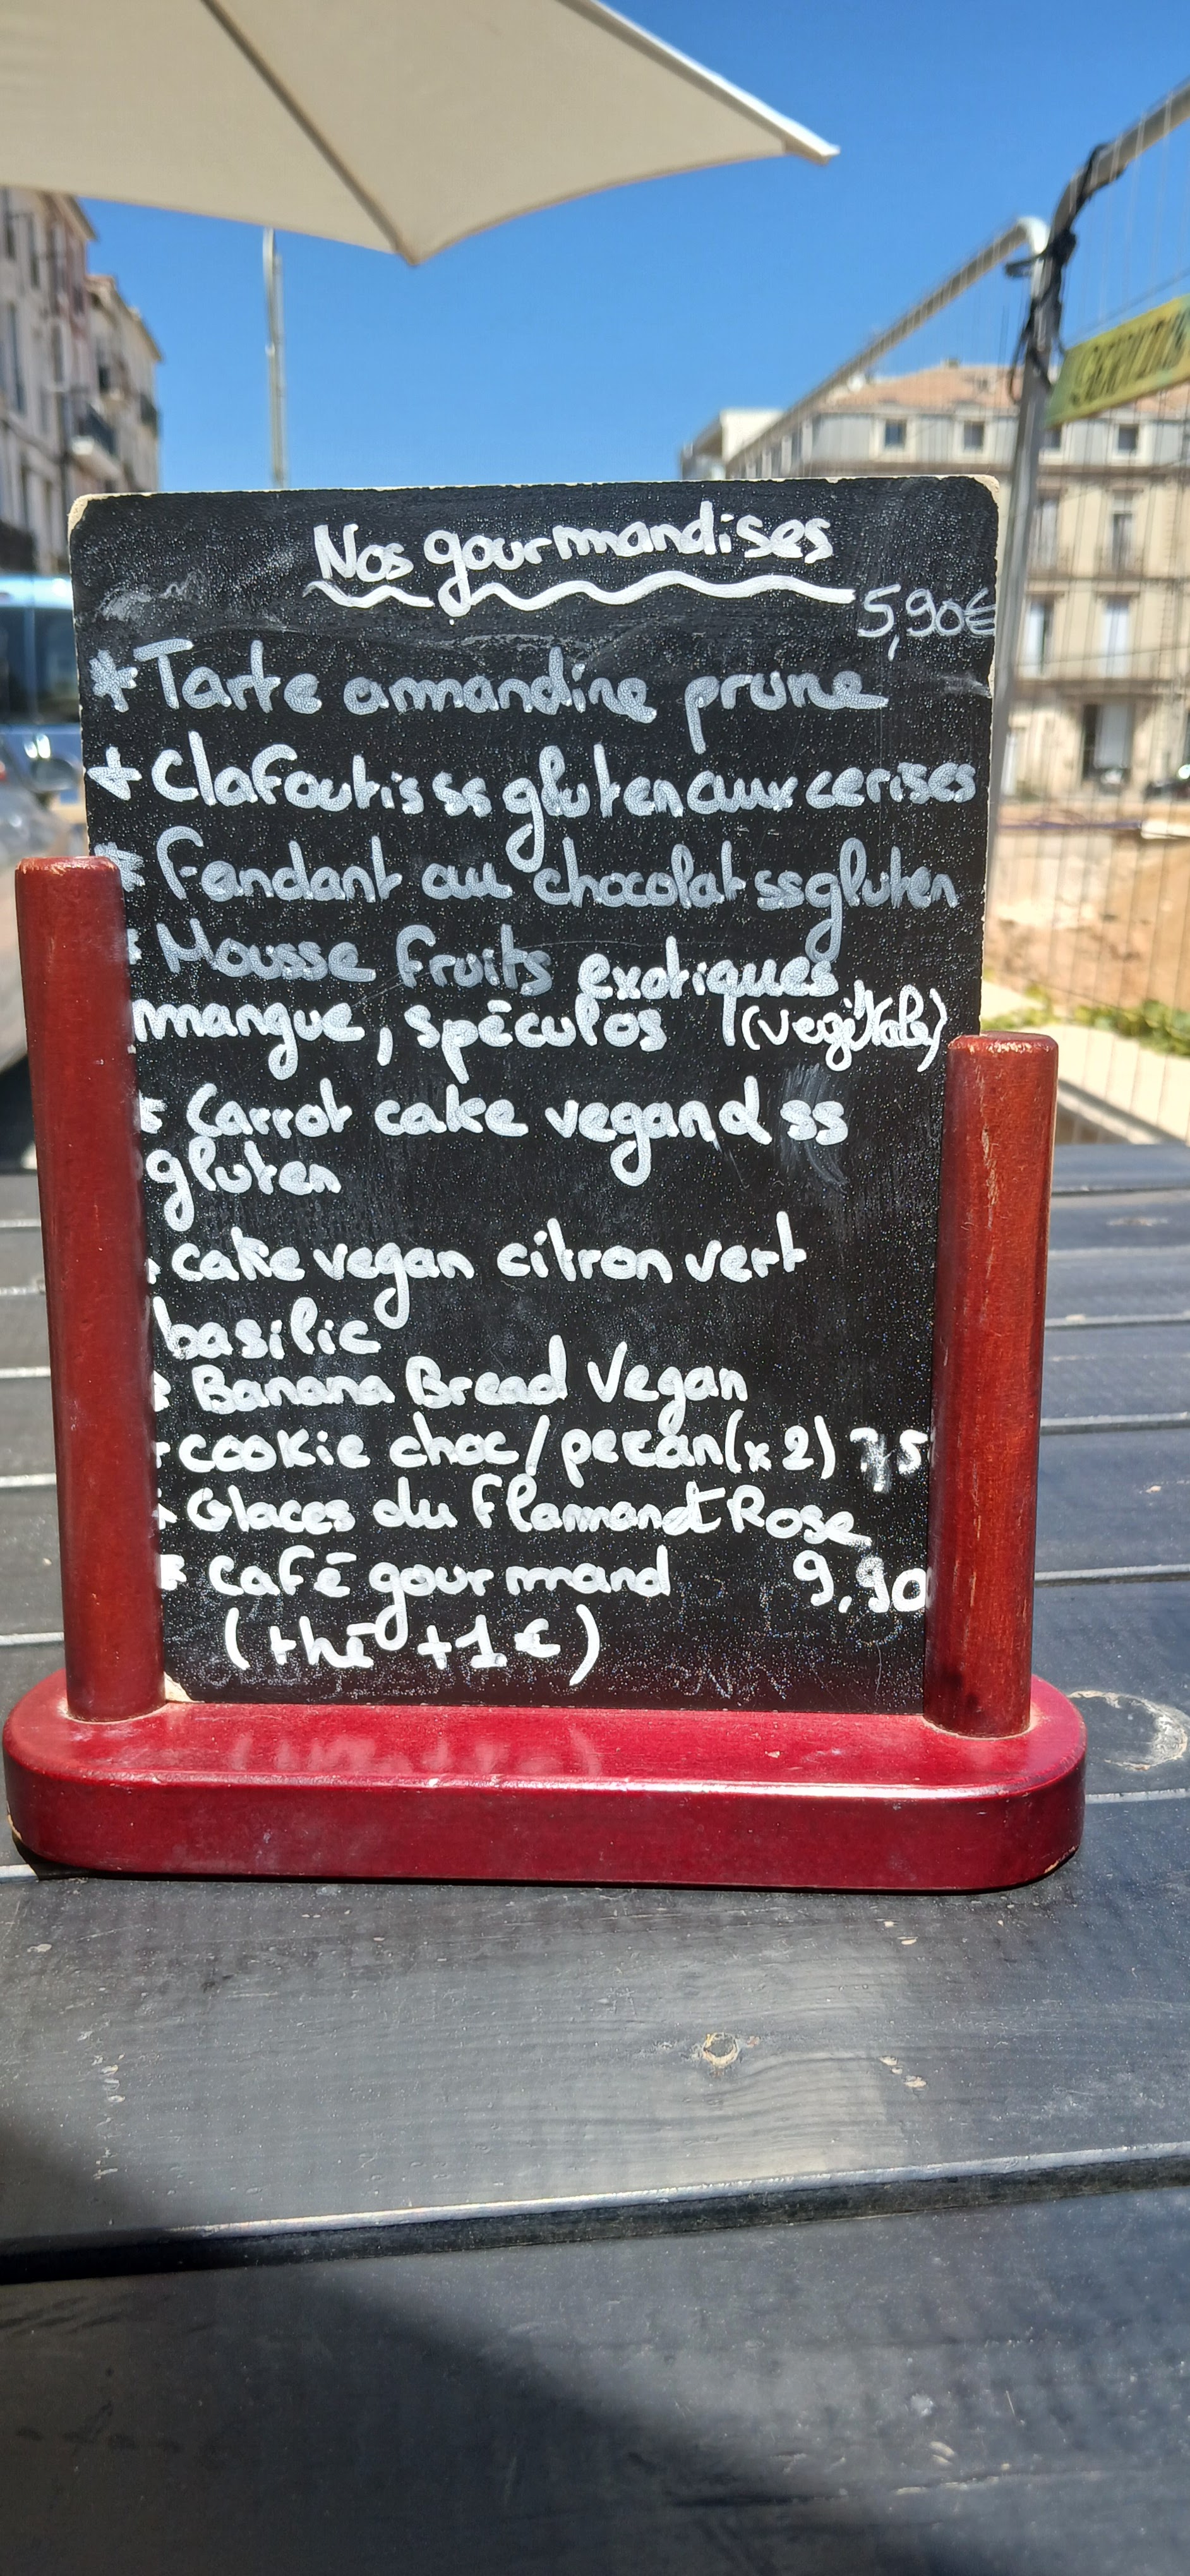 Nos gourmandises
5,90€
* Tarte amandine prune
* Clafoutis ss gluten aux cerises
* Fondant au chocolat ss gluten
* Mousse fruits exotiques
mangue, spéculos (végétale)
* Carrot cake vegan & ss
gluten
* cake vegan citron vert
basilic
* Banana Bread Vegan
* cookie choc/pecan (x2)
* Glaces du Flamant Rose
* Café gourmand 9,90
(thé +1€)